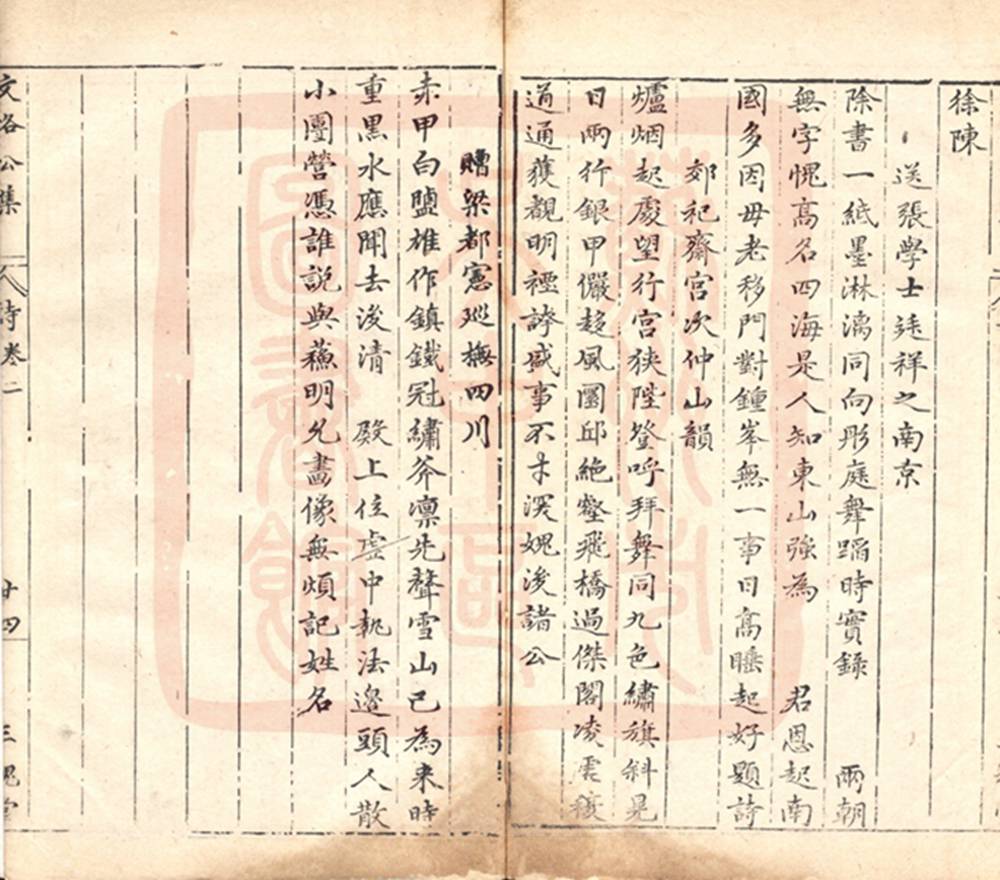 徐陳
送張學士廷祥之南京
除書一紙墨淋漓同向彤庭舞蹈時實錄　兩朝
無字愧高名四海是人知東山強為　君恩起南
國多因毋老移門對鍾峯無一事日高睡起好題詩
郊祀齋宮次仲山韻
爐烟起處望行宮狹陛登呼拜舞同九色繡旗斜晃
日兩行銀甲儼趍風圜邱絶壑飛橋過傑閣凌雲複
道通獲覩明禋誇盛事不才深媿後諸公
贈梁都憲廵撫四川
赤甲白鹽雄作鎮鐵冠繡斧凛先聲雪山已為来時
重黒水應聞去後清　殿上位虚中執法邉頭人散
小團營憑誰說與蘓明允畵像無煩記姓名
文 公集
詩卷二
廿四
三槐堂